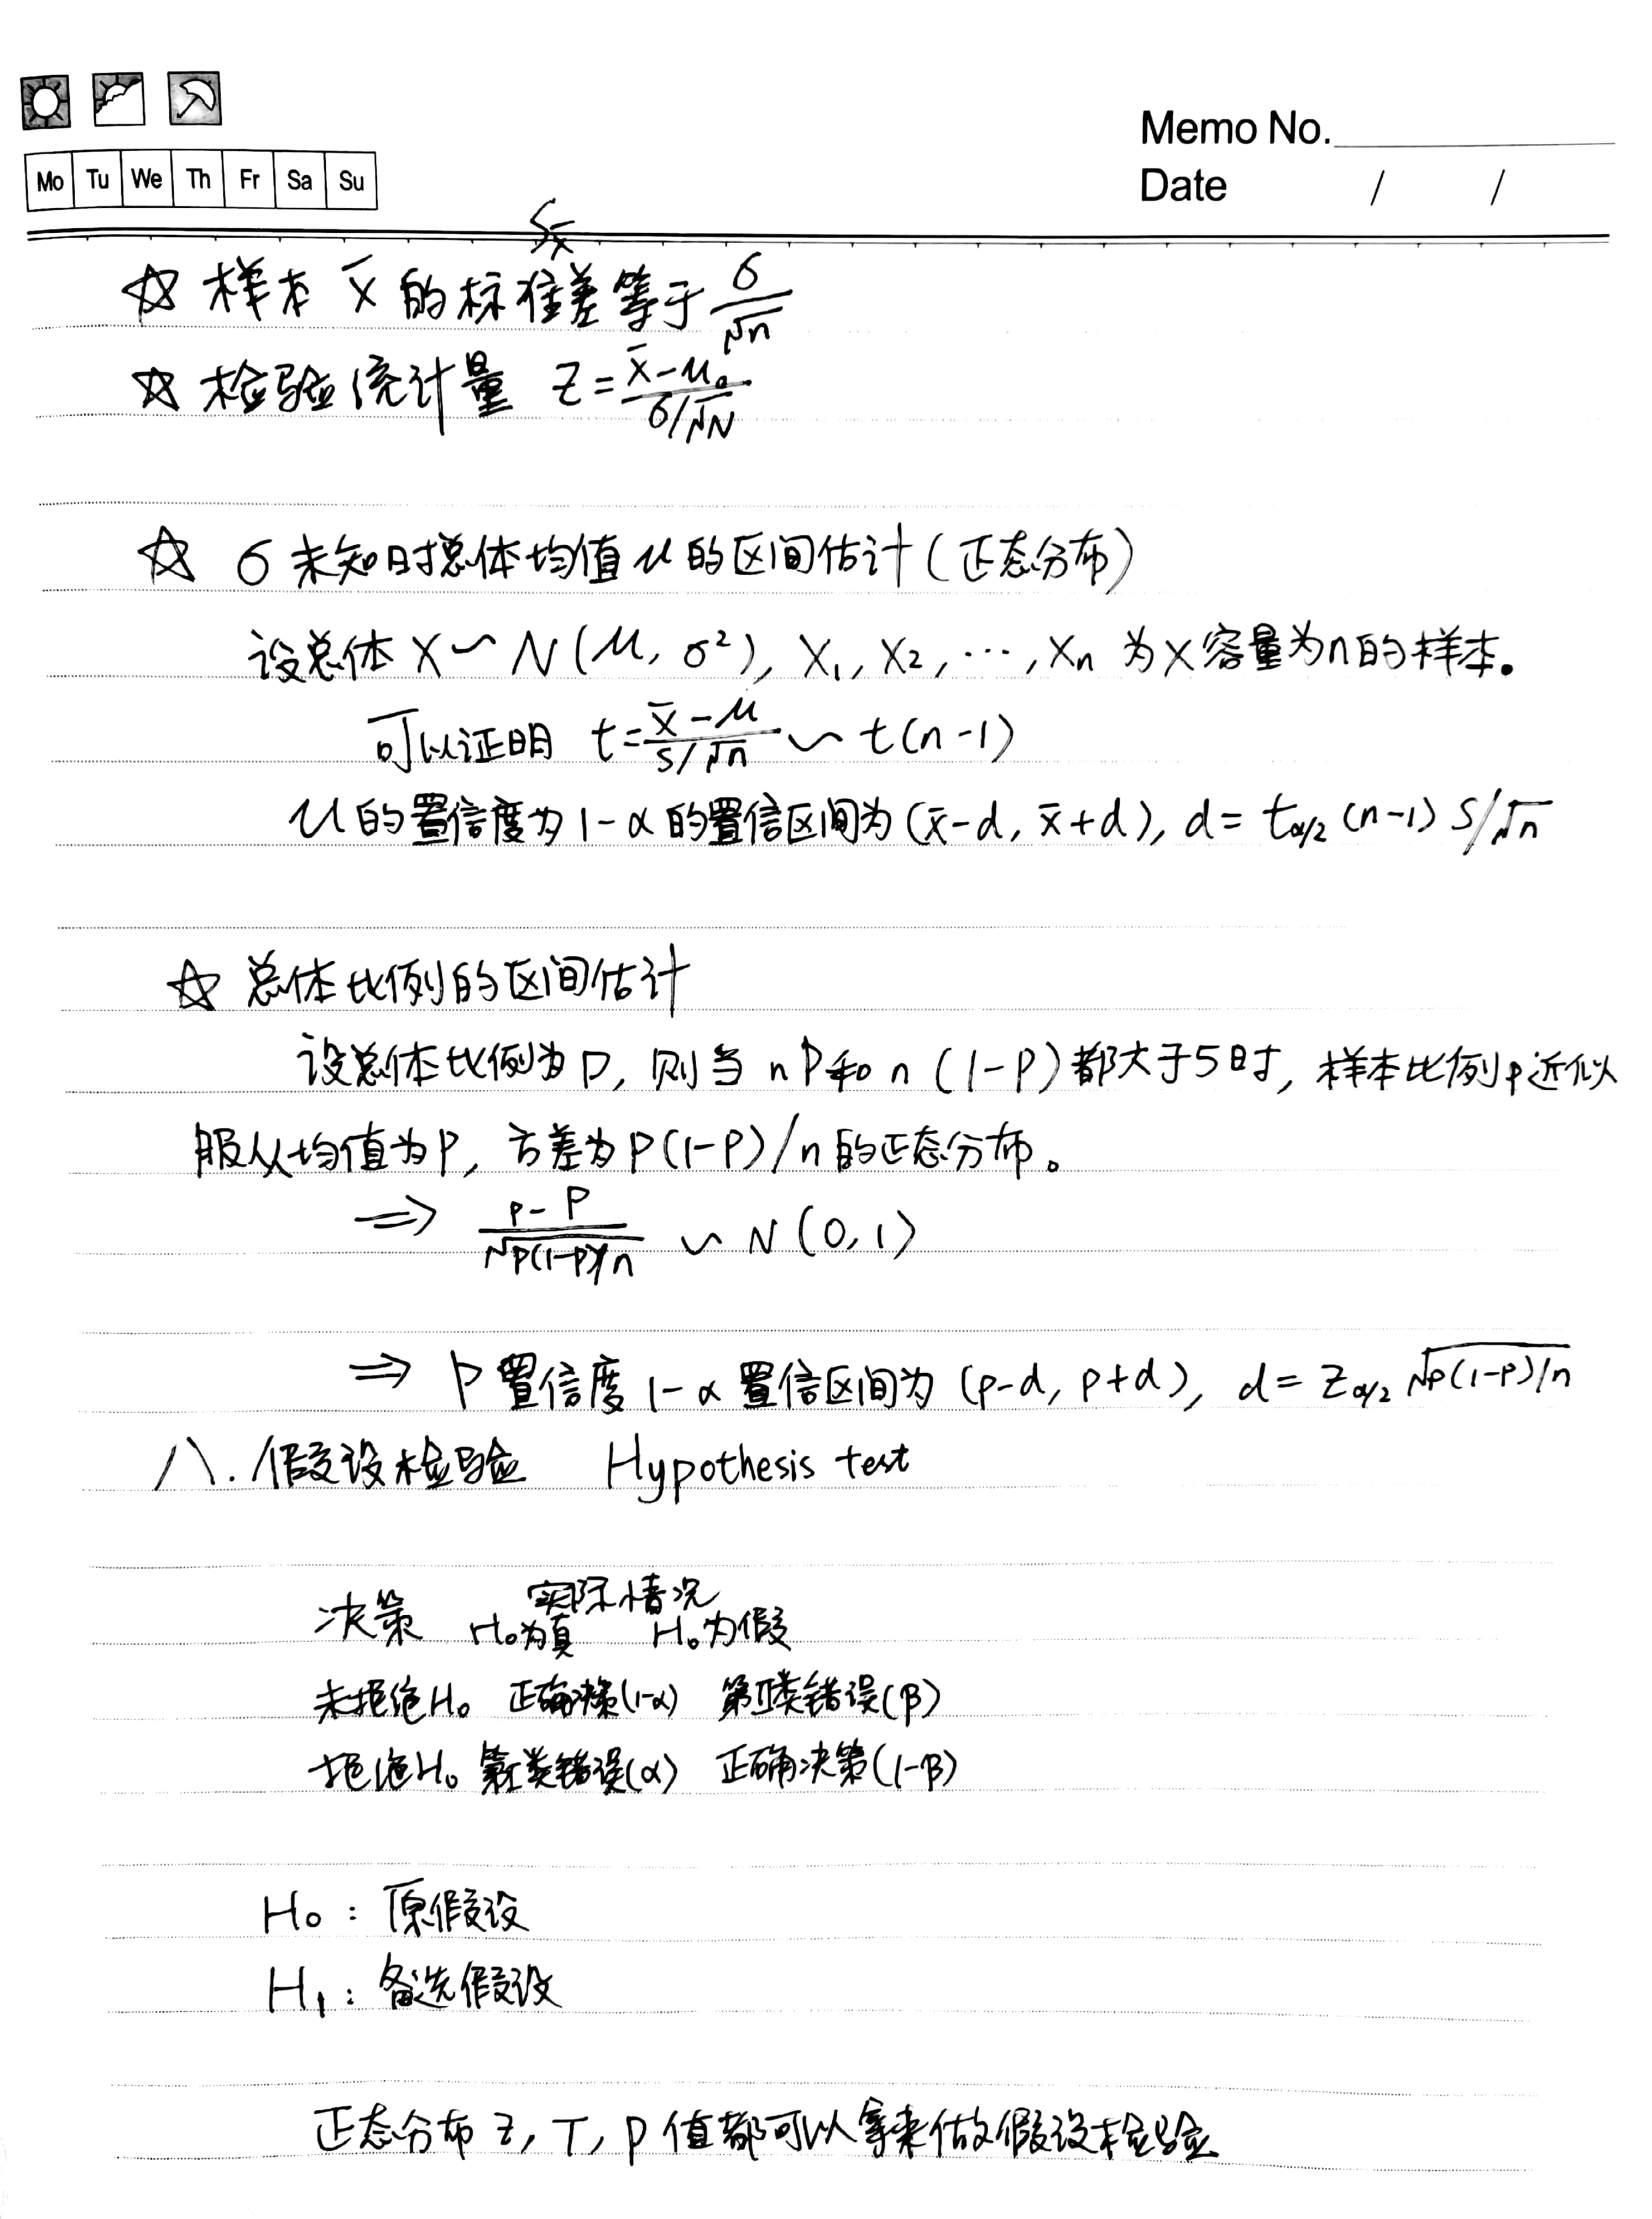 Memo No.
Mo Tu We Th Fr Sa Su
Date / /
S x̄
☆ 样本 x̄ 的标准差等于 σ/√n
☆ 检验统计量 Z = (x̄-μ₀)/(σ/√N)
☆ σ 未知时总体均值 μ 的区间估计(正态分布)
设总体 X ~ N(μ, σ²), X₁, X₂, ⋯, Xn 为 X 容量为n的样本。
可以证明 t = (x̄-μ)/(s/√n) ~ t(n-1)
μ的置信度为 1-α 的置信区间为 (x̄-d, x̄+d), d = t α/2 (n-1) S/√n
☆ 总体比例的区间估计
设总体比例为 P, 则当 nP和 n (1-P) 都大于5时, 样本比例p近似
服从均值为P, 方差为 P(1-P)/n 的正态分布。
⇒ (p-P)/√(P(1-P)/n) ~ N(0,1)
⇒ P 置信度 1-α 置信区间为 (p-d, p+d), d = Z α/2 √(p(1-p)/n)
八. 假设检验 Hypothesis test
实际情况
决策 H₀为真 H₀为假
未拒绝H₀ 正确决策(1-α) 第Ⅱ类错误(β)
拒绝H₀ 第Ⅰ类错误(α) 正确决策(1-β)
H₀: 原假设
H₁: 备选假设
正态分布 z, T, P 值都可以拿来做假设检验